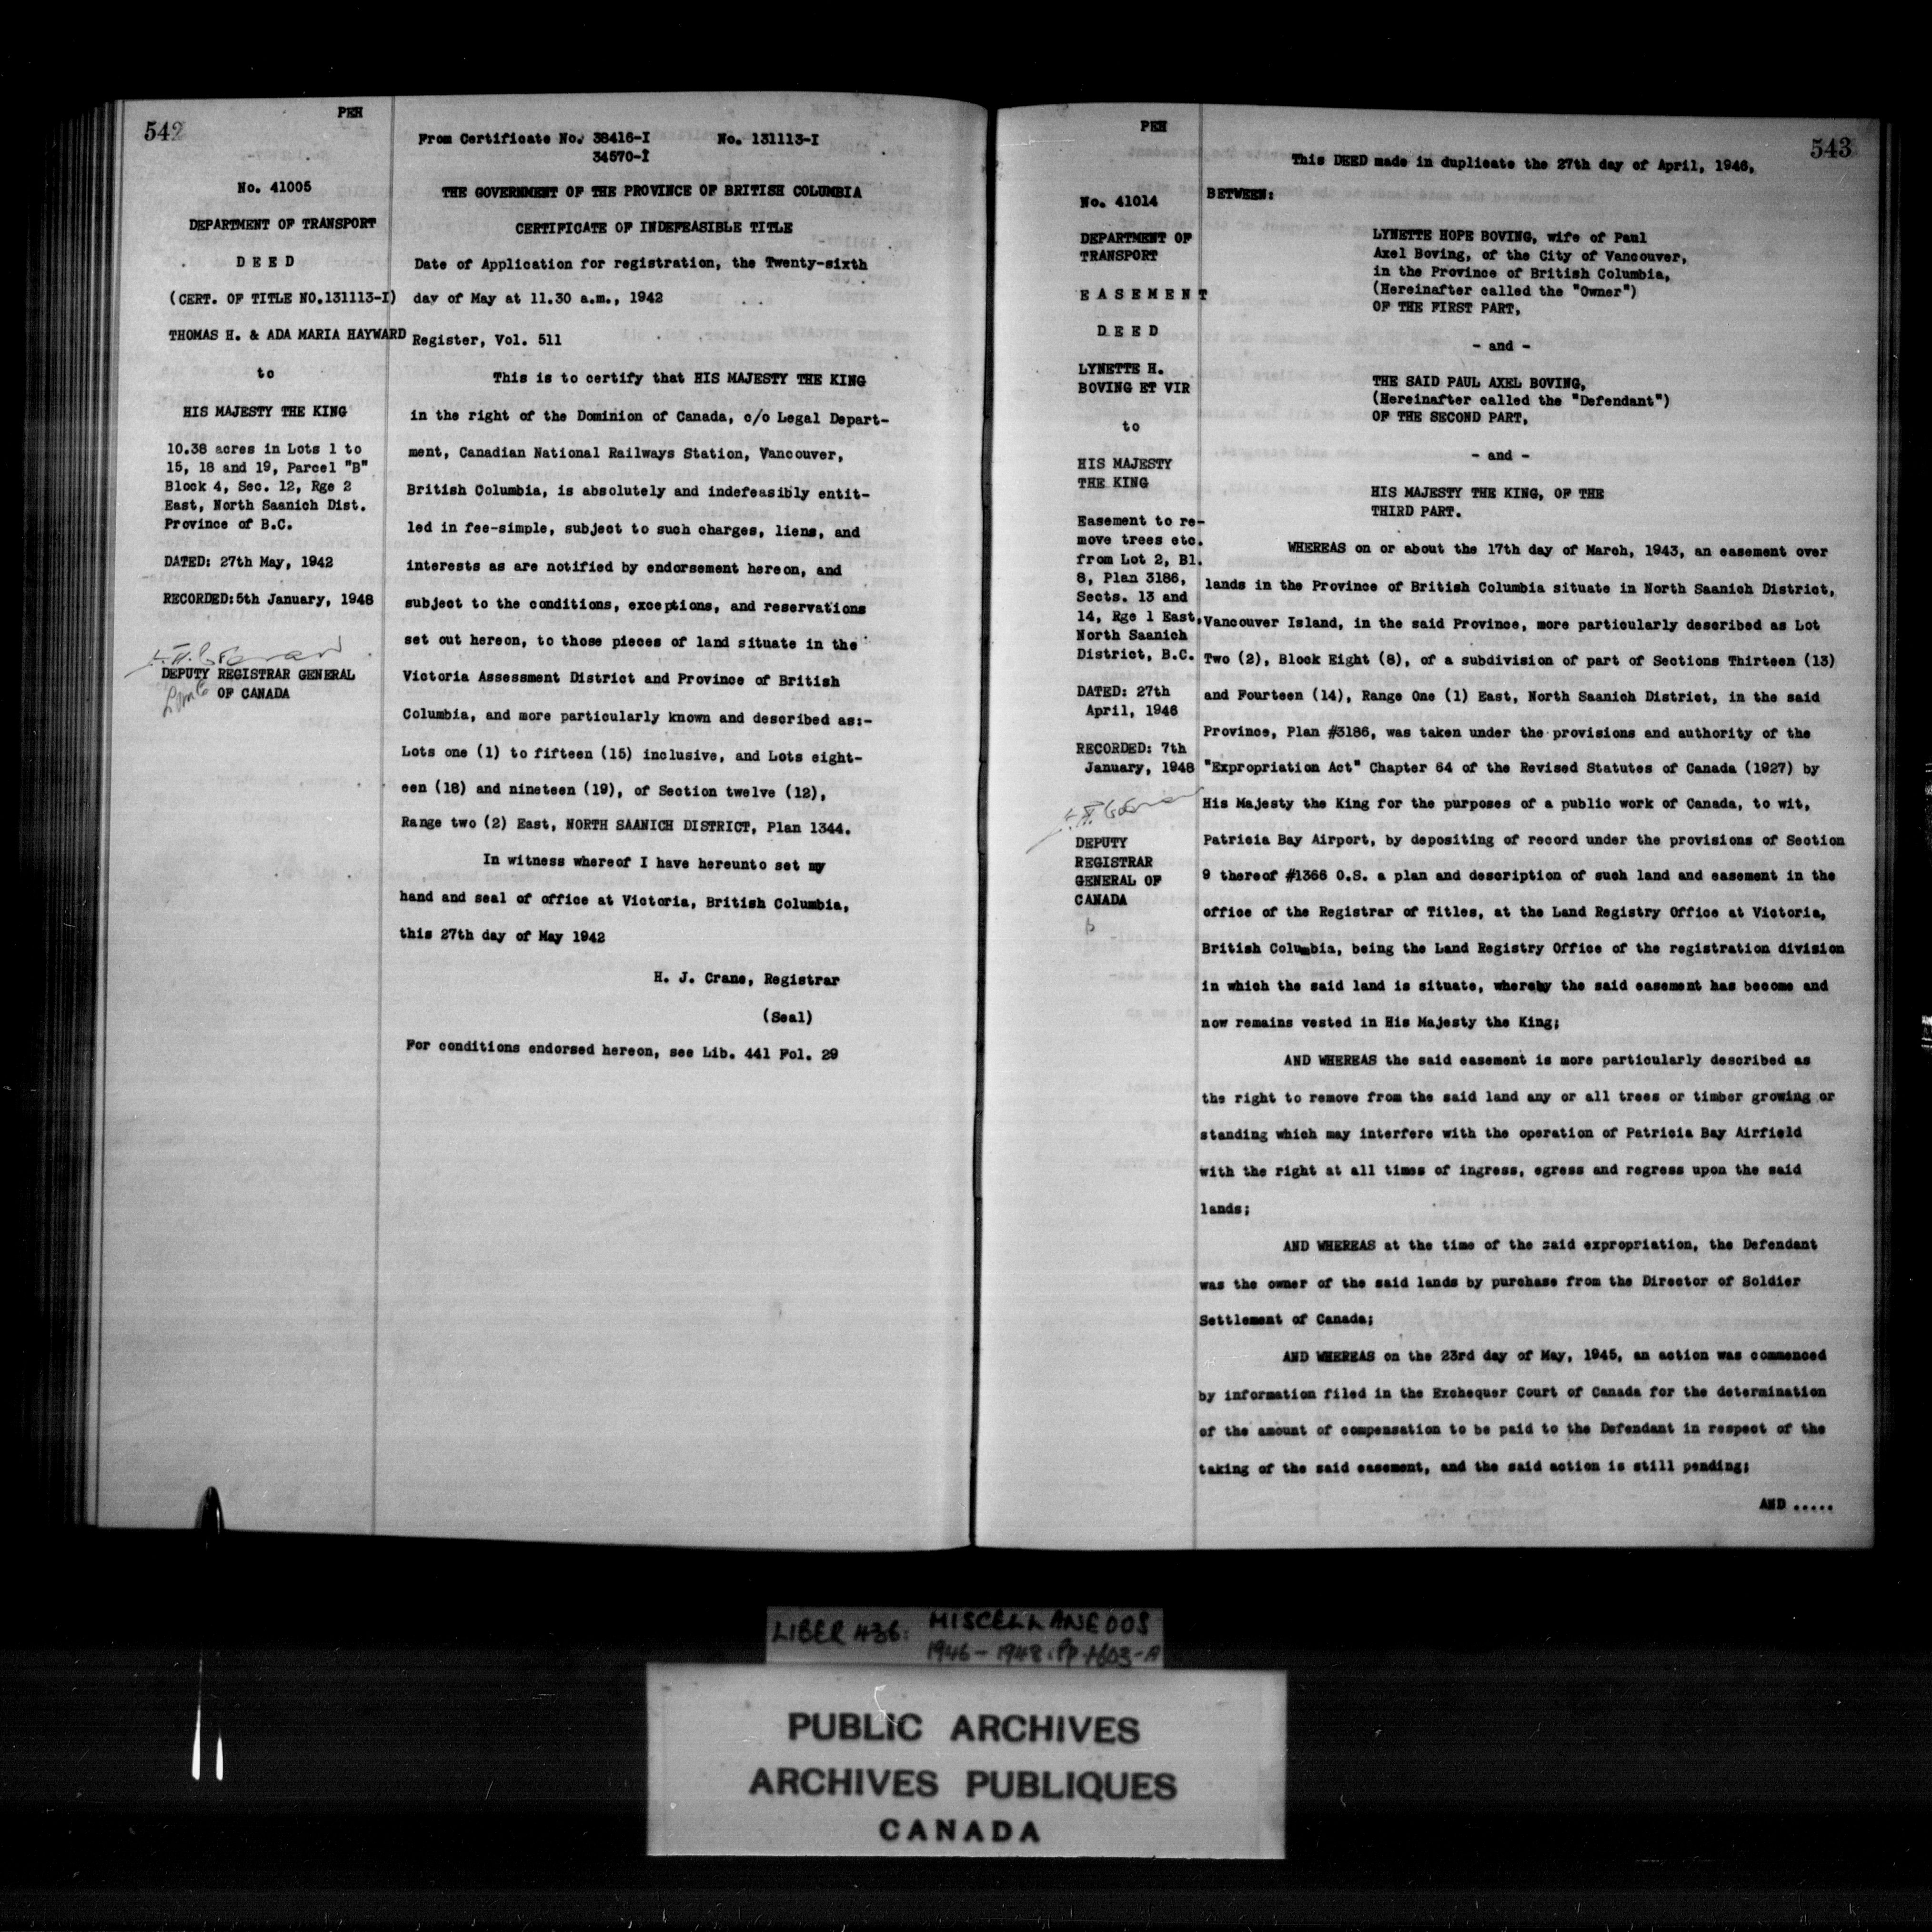 542
PEH
No. 41005
DEPARTMENT OF TRANSPORT
D E E D
(CERT. OF TITLE NO.131113-I)
THOMAS H. & ADA MARIA HAYWARD
to
HIS MAJESTY THE KING
10.38 acres in Lots 1 to
15, 18 and 19, Parcel "B"
Block 4, Sec. 12, Rge 2
East, North Saanich Dist.
Province of B.C.
DATED: 27th May, 1942
RECORDED:5th January, 1948
DEPUTY REGISTRAR GENERAL
OF CANADA
From Certificate No. 38416-I No. 131113-I
34570-I
THE GOVERNMENT OF THE PROVINCE OF BRITISH COLUMBIA
CERTIFICATE OF INDEFEASIBLE TITLE
Date of Application for registration, the Twenty-sixth
day of May at 11.30 a.m., 1942
Register, Vol. 511
This is to certify that HIS MAJESTY THE KING
in the right of the Dominion of Canada, c/o Legal Depart-
ment, Canadian National Railways Station, Vancouver,
British Columbia, is absolutely and indefeasibly entit-
led in fee-simple, subject to such charges, liens, and
interests as are notified by endorsement hereon, and
subject to the conditions, exceptions, and reservations
set out hereon, to those pieces of land situate in the
Victoria Assessment District and Province of British
Columbia, and more particularly known and described as:-
Lots one (1) to fifteen (15) inclusive, and Lots eight-
een (18) and nineteen (19), of Section twelve (12),
Range two (2) East, NORTH SAANICH DISTRICT, Plan 1344.
In witness whereof I have hereunto set my
hand and seal of office at Victoria, British Columbia,
this 27th day of May 1942
H. J. Crane, Registrar
(Seal)
For conditions endorsed hereon, see Lib. 441 Fol. 29
PEH
543
No. 41014
DEPARTMENT OF
TRANSPORT
E A S E M E N T
D E E D
LYNETTE H.
BOVING ET VIR
to
HIS MAJESTY
THE KING
Easement to re-
move trees etc.
from Lot 2, Bl.
8, Plan 3186,
Sects. 13 and
14, Rge 1 East,
North Saanich
District, B.C.
DATED: 27th
April, 1946
RECORDED: 7th
January, 1948
DEPUTY
REGISTRAR
GENERAL OF
CANADA
This DEED made in duplicate the 27th day of April, 1946,
BETWEEN:
LYNETTE HOPE BOVING, wife of Paul
Axel Boving, of the City of Vancouver,
in the Province of British Columbia,
(Hereinafter called the "Owner")
OF THE FIRST PART,
- and -
THE SAID PAUL AXEL BOVING,
(Hereinafter called the "Defendant")
OF THE SECOND PART,
- and -
HIS MAJESTY THE KING, OF THE
THIRD PART.
WHEREAS on or about the 17th day of March, 1943, an easement over
lands in the Province of British Columbia situate in North Saanich District,
Vancouver Island, in the said Province, more particularly described as Lot
Two (2), Block Eight (8), of a subdivision of part of Sections Thirteen (13)
and Fourteen (14), Range One (1) East, North Saanich District, in the said
Province, Plan #3186, was taken under the provisions and authority of the
"Expropriation Act" Chapter 64 of the Revised Statutes of Canada (1927) by
His Majesty the King for the purposes of a public work of Canada, to wit,
Patricia Bay Airport, by depositing of record under the provisions of Section
9 thereof #1366 O.S. a plan and description of such land and easement in the
office of the Registrar of Titles, at the Land Registry Office at Victoria,
British Columbia, being the Land Registry Office of the registration division
in which the said land is situate, whereby the said easement has become and
now remains vested in His Majesty the King;
AND WHEREAS the said easement is more particularly described as
the right to remove from the said land any or all trees or timber growing or
standing which may interfere with the operation of Patricia Bay Airfield
with the right at all times of ingress, egress and regress upon the said
lands;
AND WHEREAS at the time of the said expropriation, the Defendant
was the owner of the said lands by purchase from the Director of Soldier
Settlement of Canada;
AND WHEREAS on the 23rd day of May, 1945, an action was commenced
by information filed in the Exchequer Court of Canada for the determination
of the amount of compensation to be paid to the Defendant in respect of the
taking of the said easement, and the said action is still pending;
AND .....
LIBER 436: MISCELLANEOUS
1946-1948. Pp.1-603-A
PUBLIC ARCHIVES
ARCHIVES PUBLIQUES
CANADA